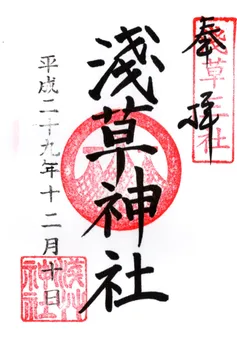 奉拝
淺草三社
淺草神社
平成二十九年十二月十日
淺草神社